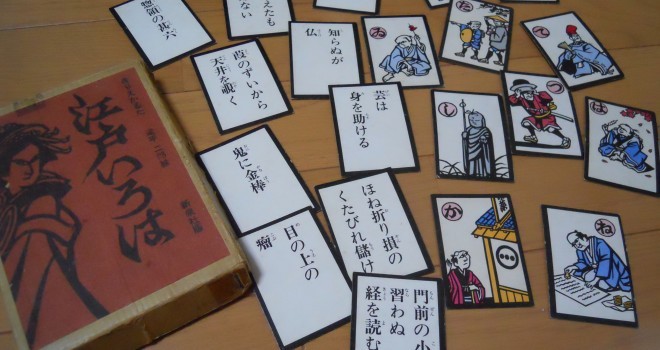 江戸いろは
惣領の甚六
えたも
ない
知らぬが
仏
葭のずいから
天井を覗く
芸は
身を助ける
鬼に金棒
ほね折り損の
くたびれ儲け
目の上の
瘤
門前の小
習わぬ
経を読む
ゐ
た
て
し
つ
は
か
ね